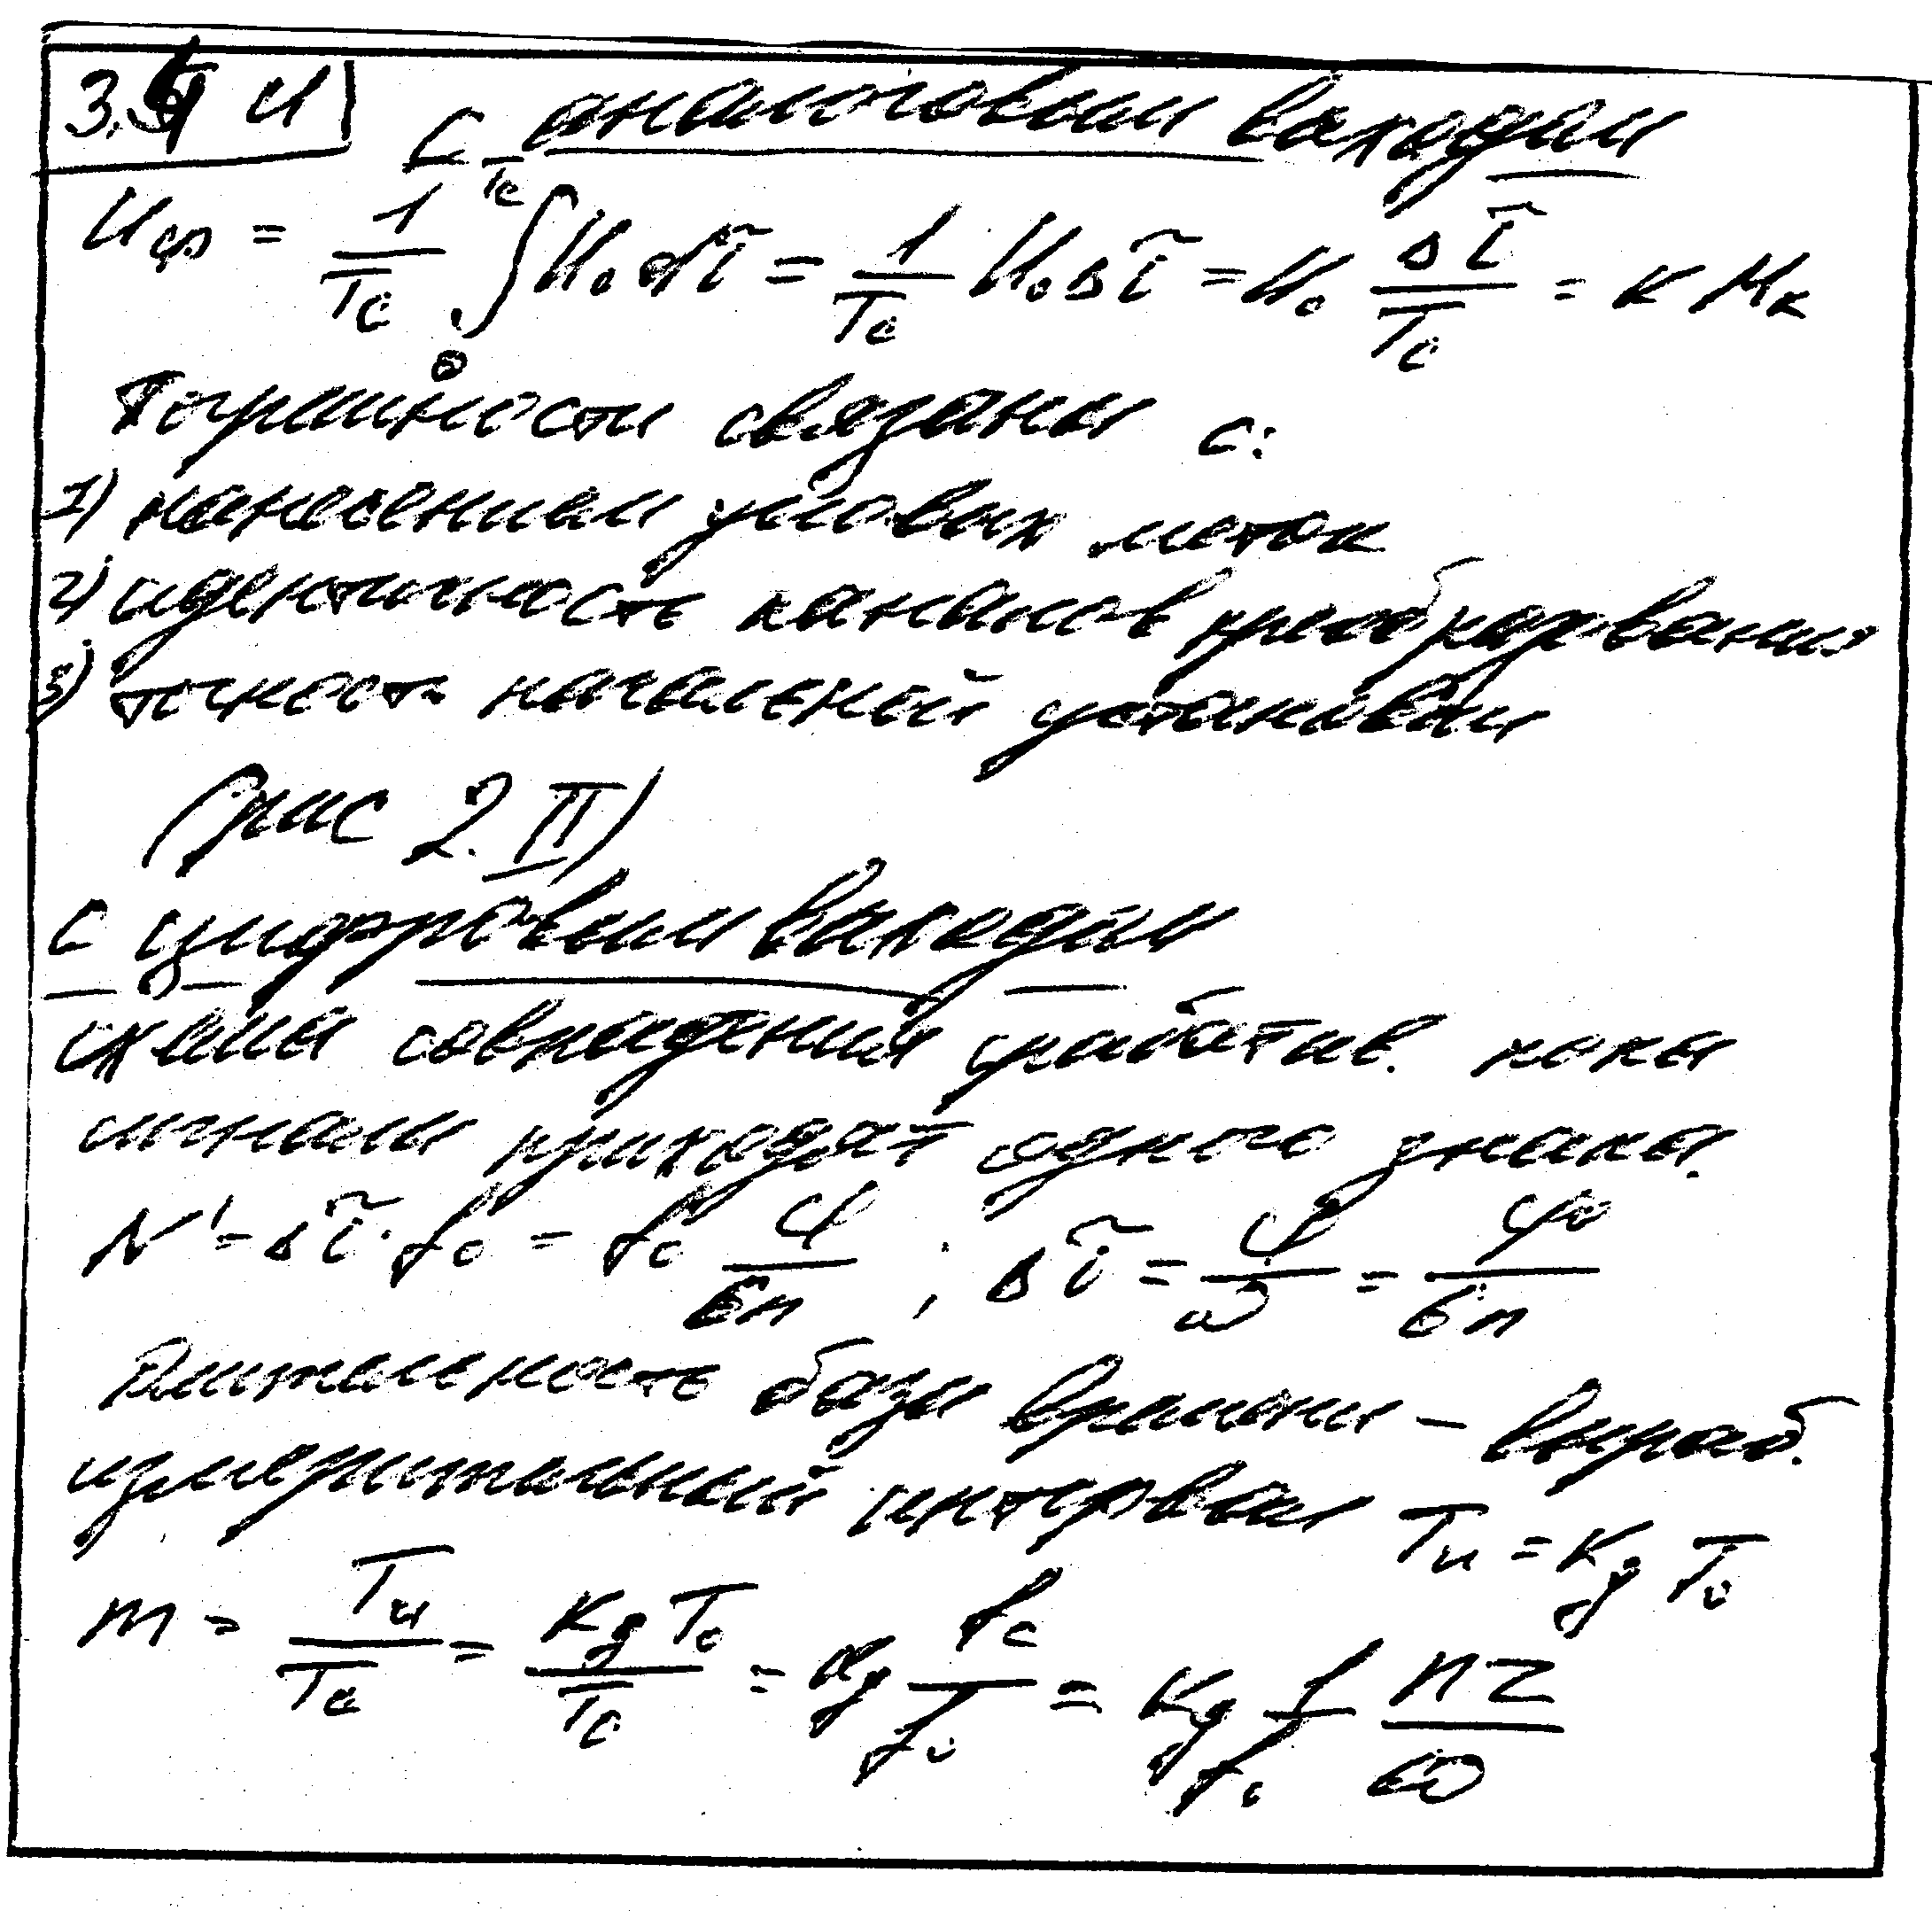 С аналоговым выходом
Uср = 1/Tc ∫₀^Tc U₀ dτ = 1/Tc U₀ Δτ = U₀ Δτ/Tc = K Mк
Погрешности связаны с:
1) нанесением угловых меток
2) идентичность каналов преобразования
3) точность начальной установки
(рис 2. II)
С цифровым выходом
схемы совпадения срабатыв. пока
сигналы приходят одного знака.
N' = Δτ · f₀ = f₀ φ/6n ; Δτ = φ/ω = φ/6n
Длительность базы времени – выраб.
измерительный интервал Tи = Kg T₀
m = Tи/Tc = Kg T₀/Tc = Kg fc/f₀ = Kg 1/f₀ nz/60